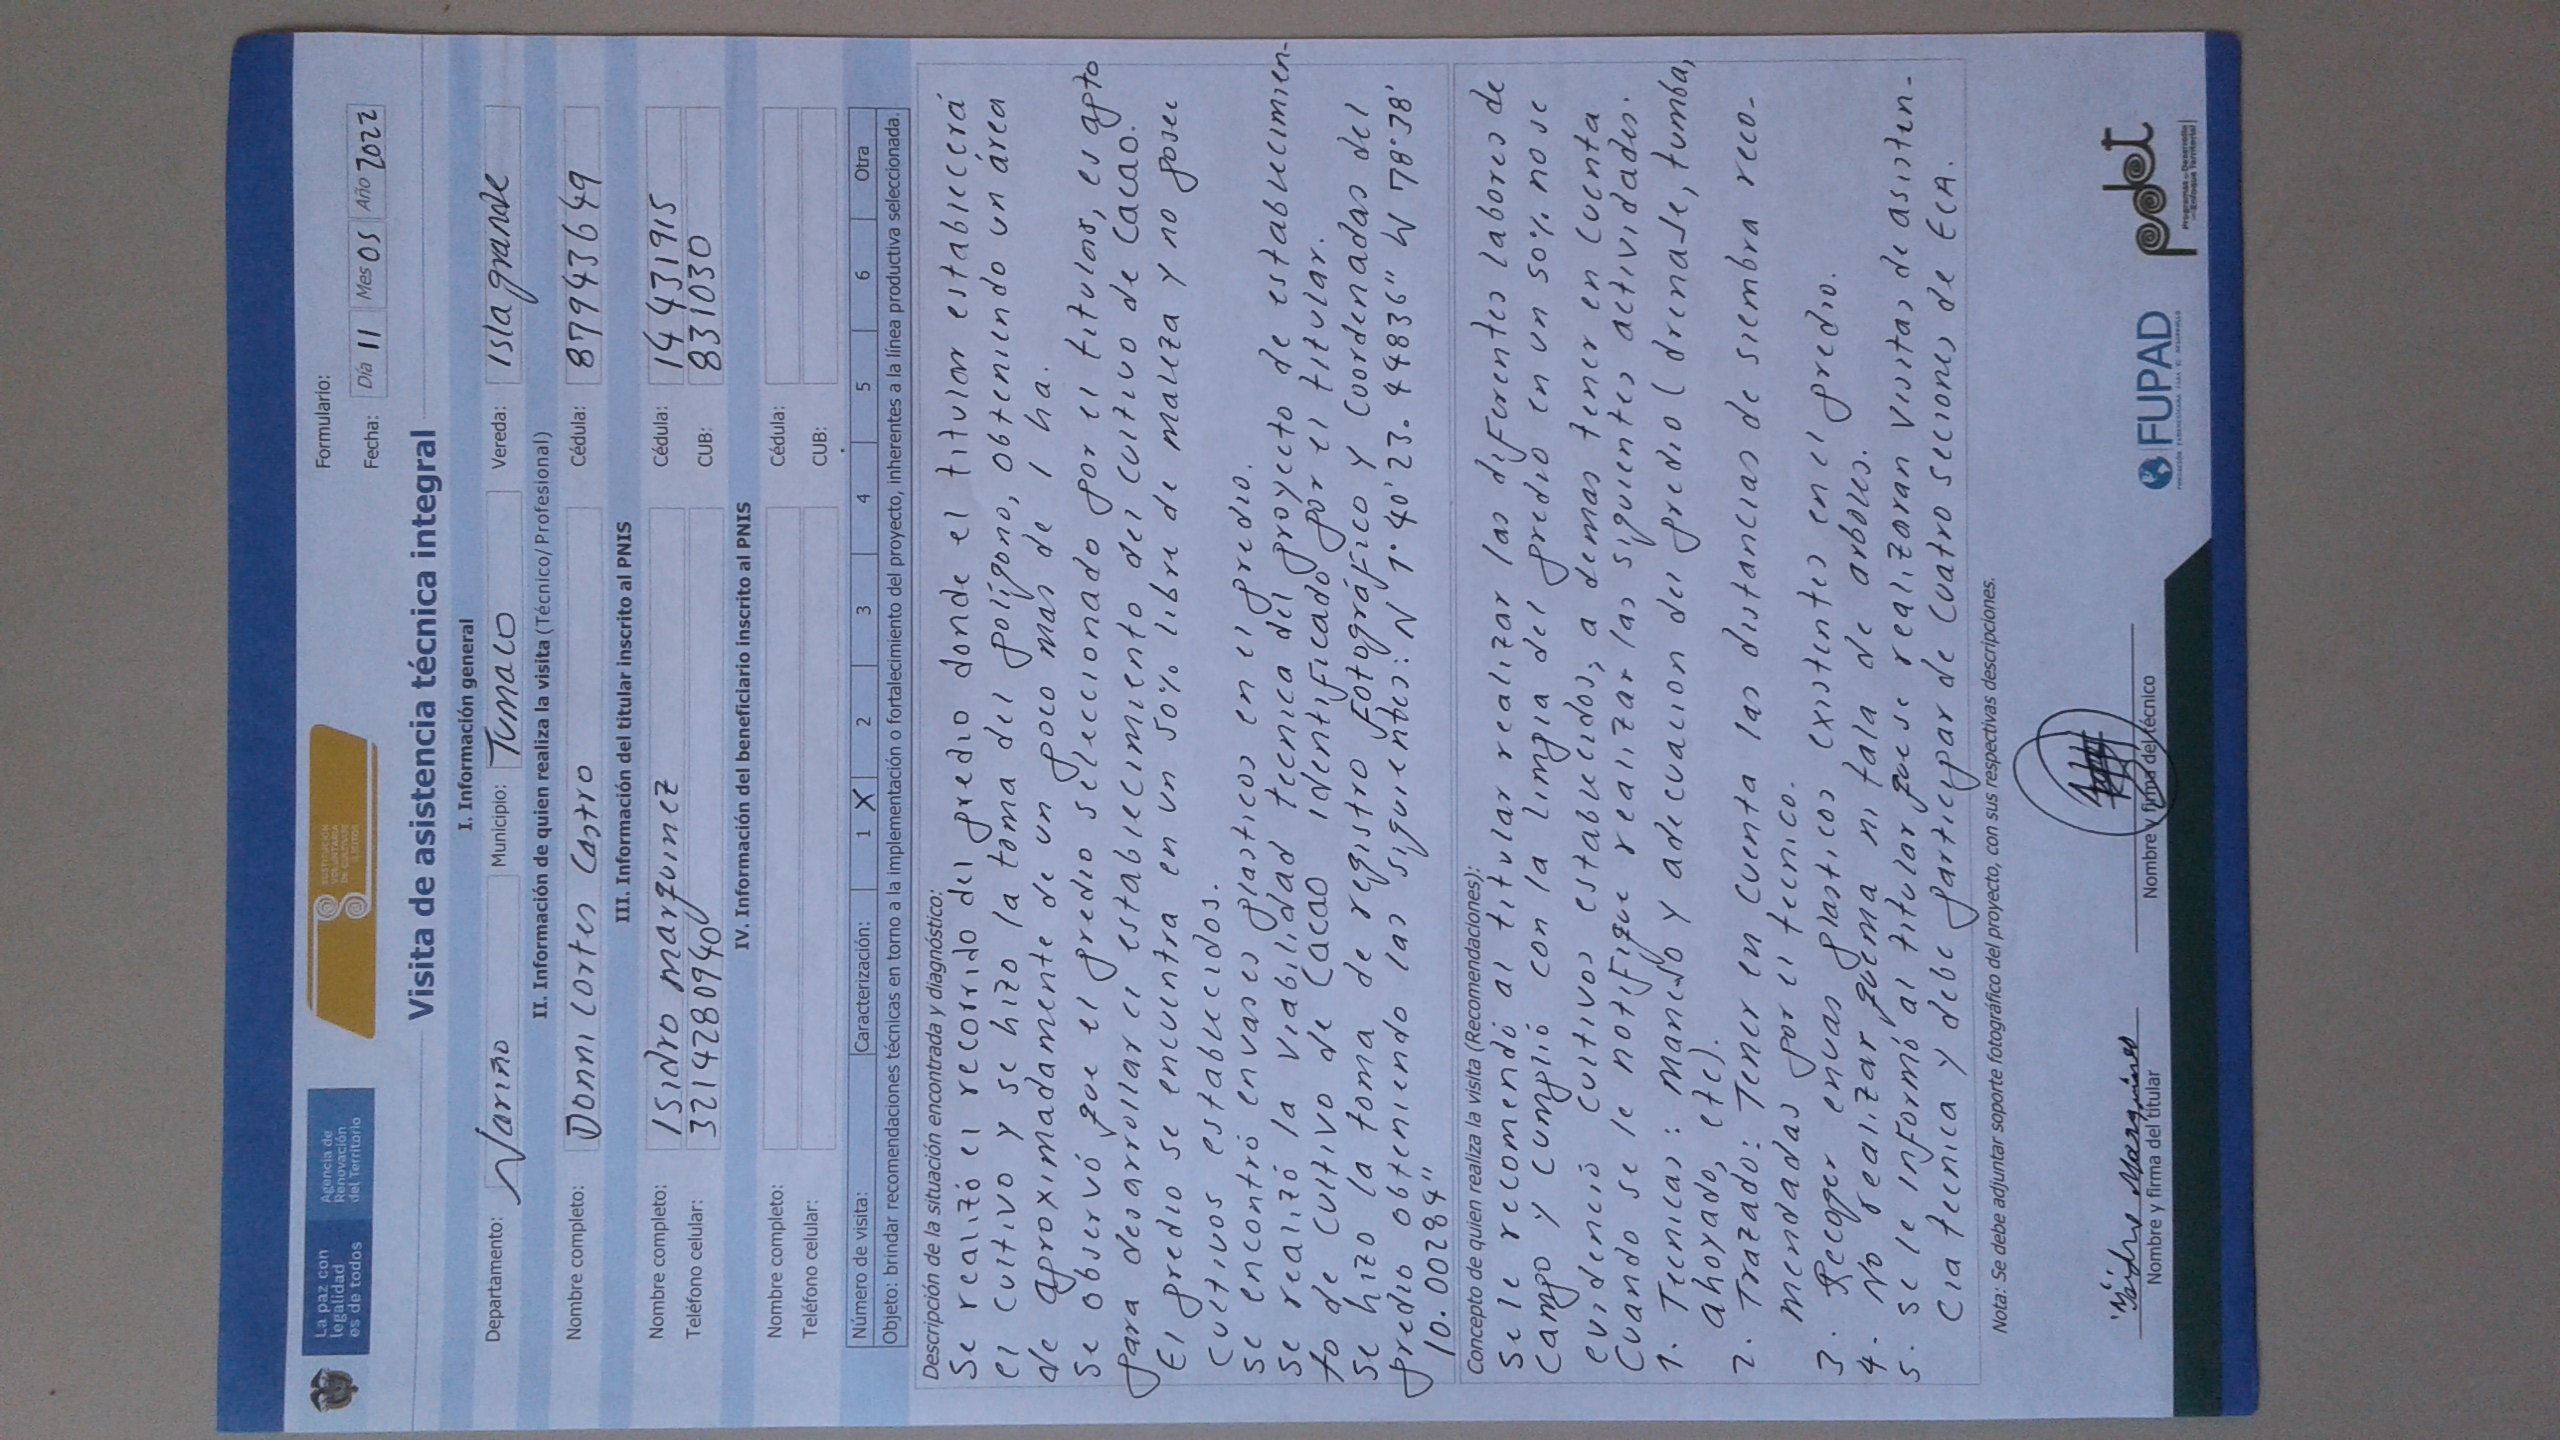 La paz con
legalidad
es de todos
Agencia de
Renovación
del Territorio
SUSTITUCIÓN
VOLUNTARIA
DE CULTIVOS
ILÍCITOS
Formulario:
Fecha: Día 11 Mes 05 Año 2022
Visita de asistencia técnica integral
I. Información general
Departamento: Nariño Municipio: Tumaco Vereda: Isla grande
II. Información de quien realiza la visita (Técnico/Profesional)
Nombre completo: Donni Cortes Castro Cédula: 87943649
III. Información del titular inscrito al PNIS
Nombre completo: Isidro marquinez Cédula: 14431915
Teléfono celular: 3214280940 CUB: 831030
IV. Información del beneficiario inscrito al PNIS
Nombre completo: Cédula:
Teléfono celular: CUB:
Número de visita: Caracterización: 1 X 2 3 4 5 6 Otra
Objeto: brindar recomendaciones técnicas en torno a la implementación o fortalecimiento del proyecto, inherentes a la línea productiva seleccionada.
Descripción de la situación encontrada y diagnóstico:
Se realizó el recorrido del predio donde el titular establecerá
el cultivo y se hizo la toma del polígono, obteniendo un área
de aproximadamente de un poco mas de 1 ha.
Se observó que el predio seleccionado por el titular, es apto
para desarrollar el establecimiento del cultivo de Cacao.
El predio se encuentra en un 50% libre de maleza y no posee
cultivos establecidos.
Se encontró envases plasticos en el predio.
Se realizó la viabilidad tecnica del proyecto de establecimien-
to de cultivo de Cacao identificado por el titular.
Se hizo la toma de registro fotográfico y Coordenadas del
predio obteniendo las siguientes: N 1°40'23.44836" W 78°38'
10.00284"
Concepto de quien realiza la visita (Recomendaciones):
Se le recomendó al titular realizar las diferentes labores de
Campo y cumplió con la limpia del predio en un 50% no se
evidenció cultivos establecidos, a demas tener en Cuenta
Cuando se le notifique realizar las siguientes actividades.
1. Tecnicas: Manejo y adecuacion del predio (drenaje, tumba,
ahoyado, etc).
2. Trazado: Tener en cuenta las distancias de siembra reco-
mendadas por el tecnico.
3. Recoger envas plasticos existentes en el predio.
4. No realizar quema ni tala de arboles.
5. Se le informó al titular que se realizaran visitas de asisten-
cia tecnica y debe participar de Cuatro seciones de ECA.
Nota: Se debe adjuntar soporte fotográfico del proyecto, con sus respectivas descripciones.
Isidro Marquines
Nombre y firma del titular
Nombre y firma del técnico
FUPAD
FUNDACIÓN PANAMERICANA PARA EL DESARROLLO
pdet
Programas de Desarrollo
con Enfoque Territorial